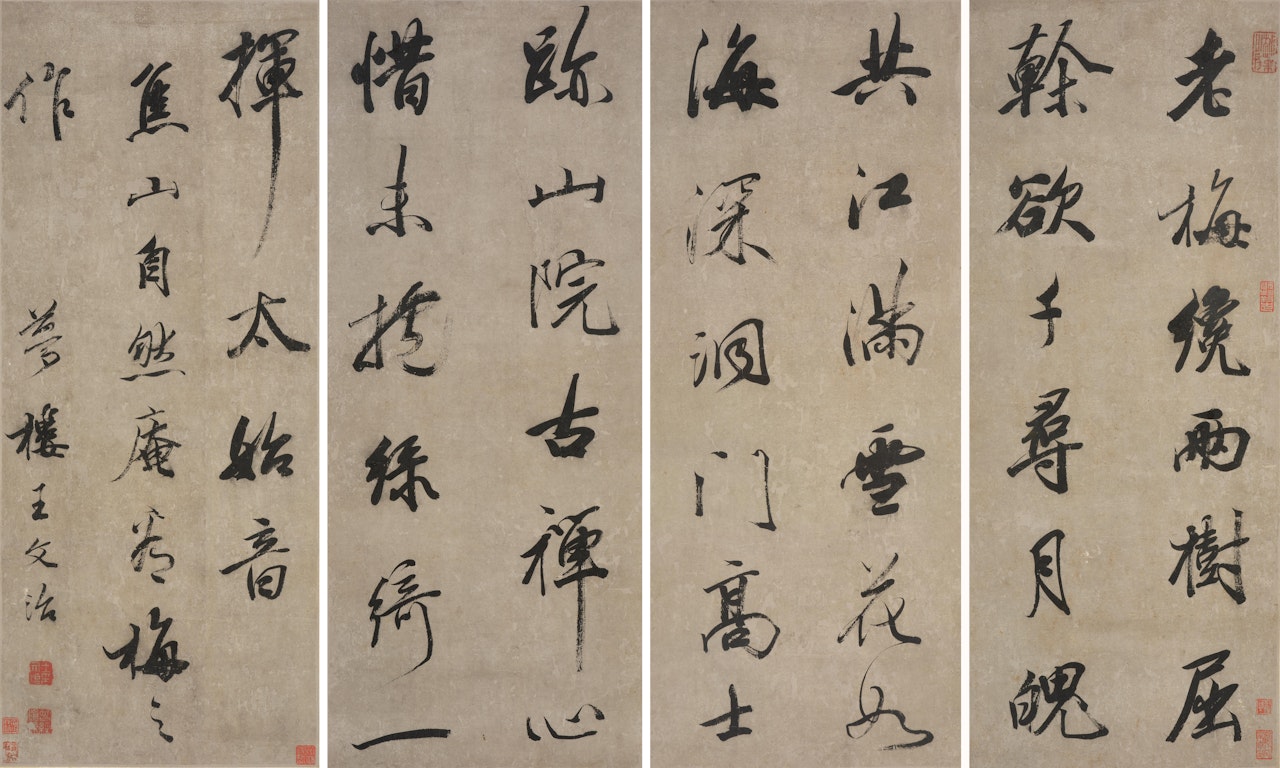 老梅纔兩樹屈
幹欲千尋月魄
共江滿雪花如
海深洞門高士
跡山院古禪心
惜未攜綠綺一
揮太始音
焦山自然庵看梅之
作 夢樓王文治